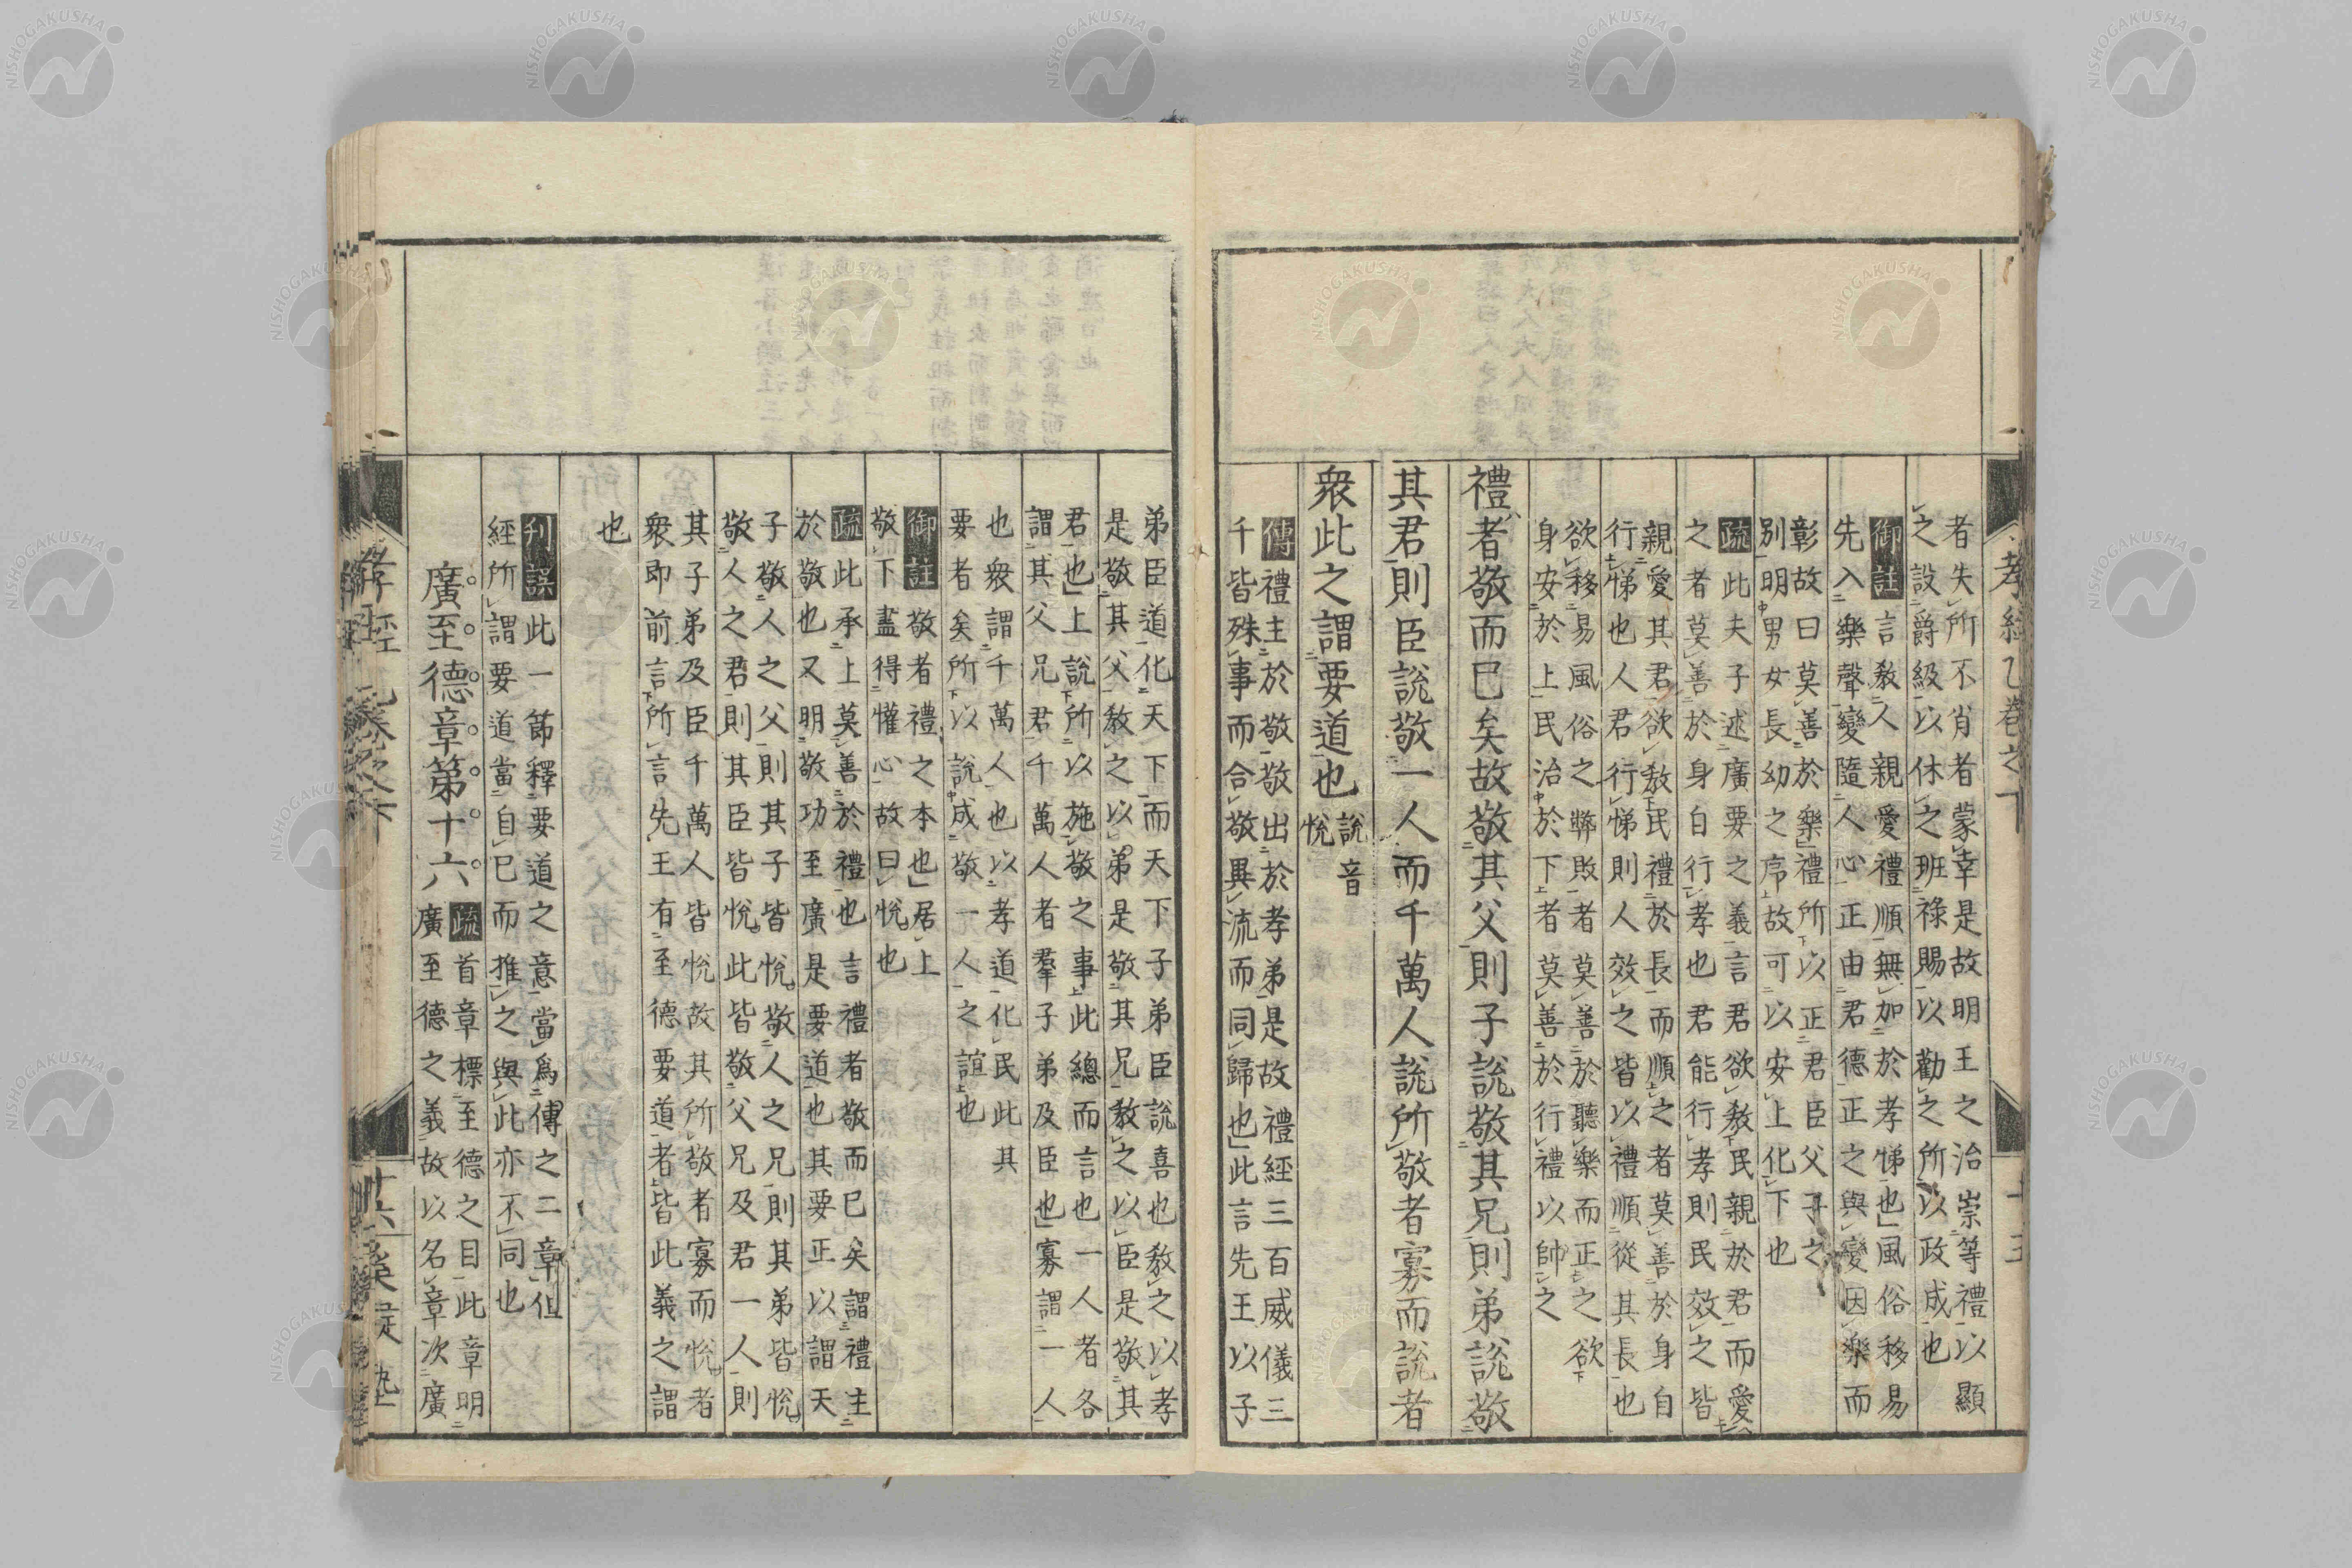 孝經
者失所不肖者蒙幸是故明王之治崇等禮以顯
之設爵級以休之班祿賜以勸之所以政成也
御註言教人親愛禮順無加於孝悌也風俗移易
先入樂聲變隨人心正由君德正之與變因樂而
彰故曰莫善於樂禮所以正君臣父子之
別明男女長幼之序故可以安上化下也
疏此夫子述廣要之義言君欲教民親於君而愛
之者莫善於身自行孝也君能行孝則民效之皆
親愛其君欲教民禮於長而順之者莫善於身自
行悌也人君行悌則人效之皆以禮順從其長也
欲移易風俗之弊敗者莫善於聽樂而正之欲
身安於上民治於下者莫善於行禮以帥之
禮者敬而已矣故敬其父則子說敬其兄則弟說敬
其君則臣說敬一人而千萬人說所敬者寡而說者
衆此之謂要道也
說音
悅
傳禮主於敬敬出於孝弟是故禮經三百威儀三
千皆殊事而合敬異流而同歸也此言先王以子
弟臣道化天下而天下子弟臣說喜也教之以孝
是敬其父教之以弟是敬其兄教之以臣是敬其
君也上說所以施敬之事此總而言也一人者各
謂其父兄君千萬人者羣子弟及臣也寡謂一人
也衆謂千萬人也以孝道化民此其
要者矣所以說成敬一人之誼也
御註敬者禮之本也居上
敬下盡得懽心故曰悅也
疏此承上莫善於禮也言禮者敬而已矣謂禮主
於敬也又明敬功至廣是要道也其要正以謂天
子敬人之父則其子皆悅敬人之兄則其弟皆悅
敬人之君則其臣皆悅此皆敬父兄及君一人則
其子弟及臣千萬人皆悅故其所敬者寡而悅者
衆即前言所言先王有至德要道者皆此義之謂
也
刊誤此一節釋要道之意當爲傳之二章但
經所謂要道當自已而推之與此亦不同也
廣至德章第十六
疏首章標至德之目此章明
廣至德之義故以名章次廣
NISHOGAKUSHA